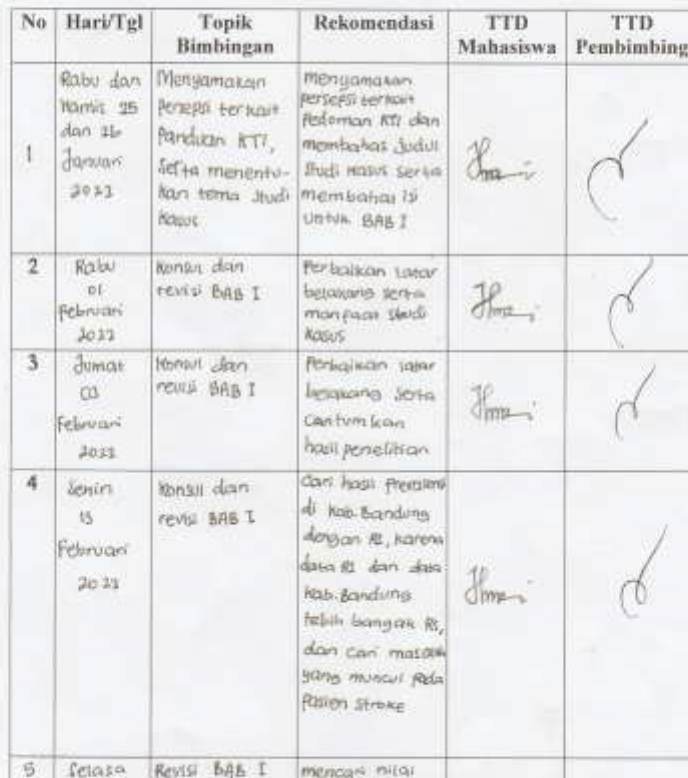 No Hari/Tgl Topik Bimbingan Rekomendasi TTD Mahasiswa TTD Pembimbing
1
Rabu dan
Kamis 25
dan 26
Januari
2023
Menyamakan
Persepsi terkait
Panduan KTI,
Serta menentu-
kan tema studi
kasus
menyamakan
persepsi terkait
Pedoman KTI dan
membahas judul
Studi kasus serta
membahas isi
untuk BAB I
2
Rabu
01
Februari
2023
Konsul dan
revisi BAB I
Perbaikan latar
belakang serta
manfaat studi
kasus
3
Jumat
03
Februari
2023
Konsul dan
revisi BAB I
Perbaikan latar
belakang serta
Cantumkan
hasil penelitian
4
Senin
13
Februari
2023
Konsul dan
revisi BAB I
Cari hasil
di kab. Bandung
dengan RS, karena
data RS dan data
kab. Bandung
lebih banyak RS,
dan cari masalah
yang muncul pada
Pasien Stroke
5
Selasa
Revisi BAB I
mencari nilai